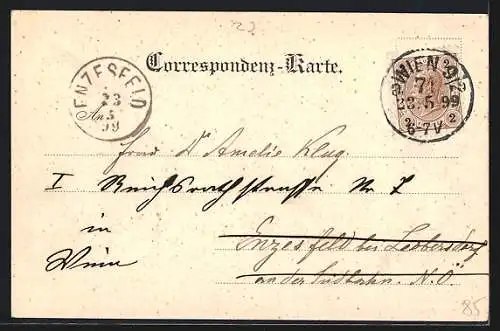 22
Correspondenz-Karte.
ENZESFELD
23
5
99
WIEN 9/2
71
23.5.99
6-7V
2
An
Dr Amelie Klug
I Reichsrathstrasse Nr 7
in
Wien
Enzesfeld bei Leobersdorf
an der Südbahn. N.Ö.
85